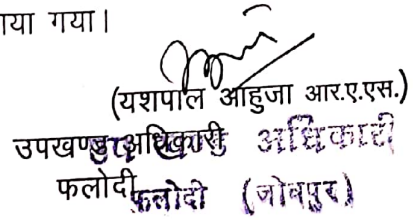 ाया गया।
(यशपाल आहुजा आर.ए.एस.)
उपखण्ड अधिकारी
अधिकारी
फलोदी
फलोदी (जोधपुर)